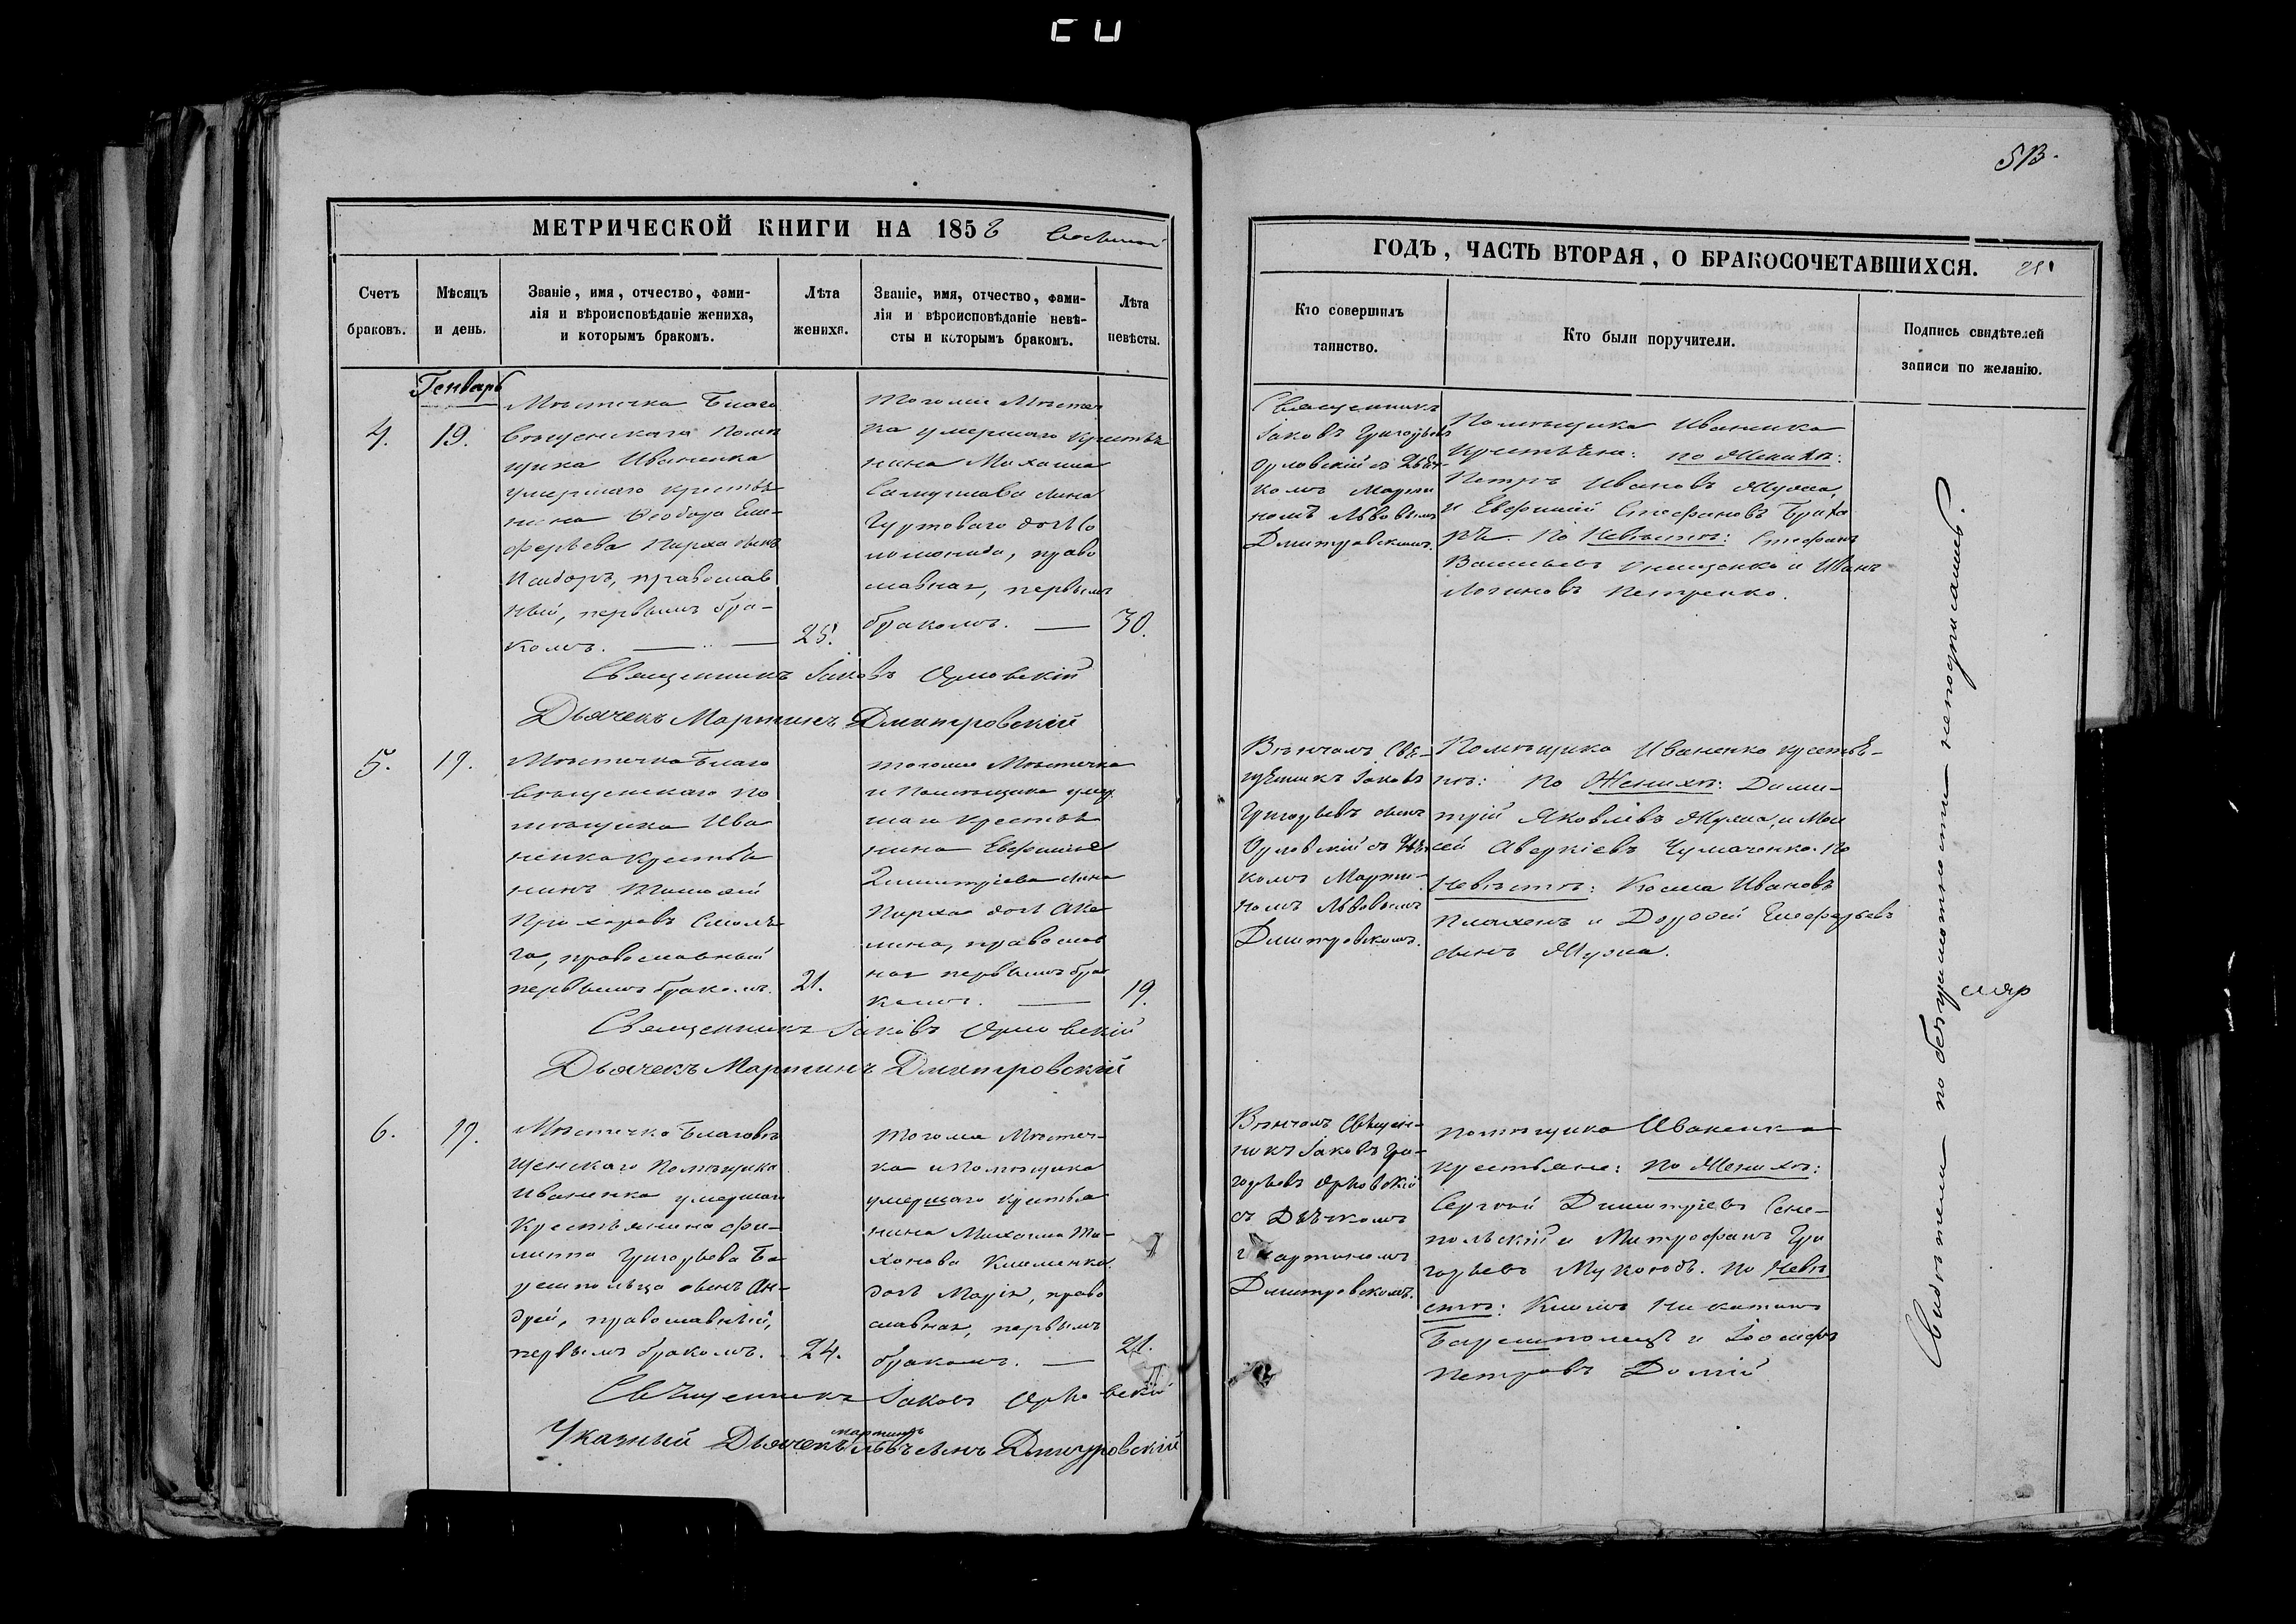 513.
МЕТРИЧЕСКОЙ КНИГИ НА 1858
Счетъ
браковъ.
Мѣсяцъ
и день.
Званіе, имя, отчество, фами-
лія и вѣроисповѣданіе жениха,
и которымъ бракомъ.
Лѣта
жениха.
Званіе, имя, отчество, фами-
лія и вѣроисповѣданіе невѣ-
сты и которымъ бракомъ.
Лѣта
невѣсты.
Генварь
4.
19.
Мѣстечка Благо
вѣщенскаго Помѣ
щика Иваненка
умершаго крестья
нина Ѳеодора
Пархо сынъ
православ
ный, первымъ бра-
комъ.
25.
тогоже Мѣстеч
ка умершаго крестья
нина Михаила
право
славная, первымъ
бракомъ.
30.
Священникъ Іаковъ Орловскій
Дьячекъ Мартинъ Дмитровскій
5.
19.
Мѣстечка Благо
вѣщенскаго По
мѣщика Ива
ненка крестья
нинъ Тимофей
Прохоровъ
православный
первымъ бракомъ.
21.
тогоже Мѣстечка
и Помѣщика умер
шаго крестья
нина Евфимія
Димитріева сына
Пархо дочь Аки
лина, православ
ная первымъ бра
комъ.
19.
Священникъ Іаковъ Орловскій
Дьячекъ Мартинъ Дмитровскій
6.
19.
Мѣстечка Благовѣ
щенскаго Помѣщика
Иваненка умершаго
Крестьянина Фи-
липпа Григорьева Бо
сынъ Ан-
дрей, православный,
первымъ бракомъ.
24.
тогоже Мѣстеч-
ка и Помѣщика
умершаго крестья
нина Михаила Ти-
хонова Клименка
дочь Марія, право
славная, первымъ
бракомъ.
21.
Священникъ Іаковъ Орловскій
Указный Дьячекъ Мартинъ Дмитровскій
ГОДЪ, ЧАСТЬ ВТОРАЯ, О БРАКОСОЧЕТАВШИХСЯ.
Кто совершилъ
таинство.
Кто были поручители.
Подпись свидѣтелей
записи по желанію.
Священникъ
Іаковъ Григорьевъ
Орловскій съ Дьяч-
комъ Марти
номъ Львовымъ
Дмитровскимъ.
Помѣщика Иваненка
крестьяне: по Женихѣ:
Петръ Ивановъ
и Евфимій Стефановъ
По Невѣстѣ: Стефанъ
Васильевъ Онищенко и Иванъ
Логиновъ Петренко.
Вѣнчалъ Свя-
щенникъ Іаковъ
Григорьевъ сынъ
Орловскій съ Дьяч
комъ Марти-
номъ Львовымъ
Дмитровскимъ.
Помѣщика Иваненка крестья-
не: По Женихѣ: Дими-
трій Яковлевъ и Мои
сей Аверкіевъ Чумаченко. По
Невѣстѣ: Косма Ивановъ
и Дорофей
сынъ
Вѣнчалъ Священ-
никъ Іаковъ Гри-
горьевъ Орловскій
съ Дьячкомъ
Мартиномъ
Дмитровскимъ.
Помѣщика Иваненка
крестьяне: По Женихѣ:
Сергѣй Димитріевъ Сене-
польскій и Митрофанъ Гри
горьевъ По Невѣ
стѣ: Климъ Никитинъ
и Іосифъ
Петровъ
Свидѣтели по безграмотности неподписались.